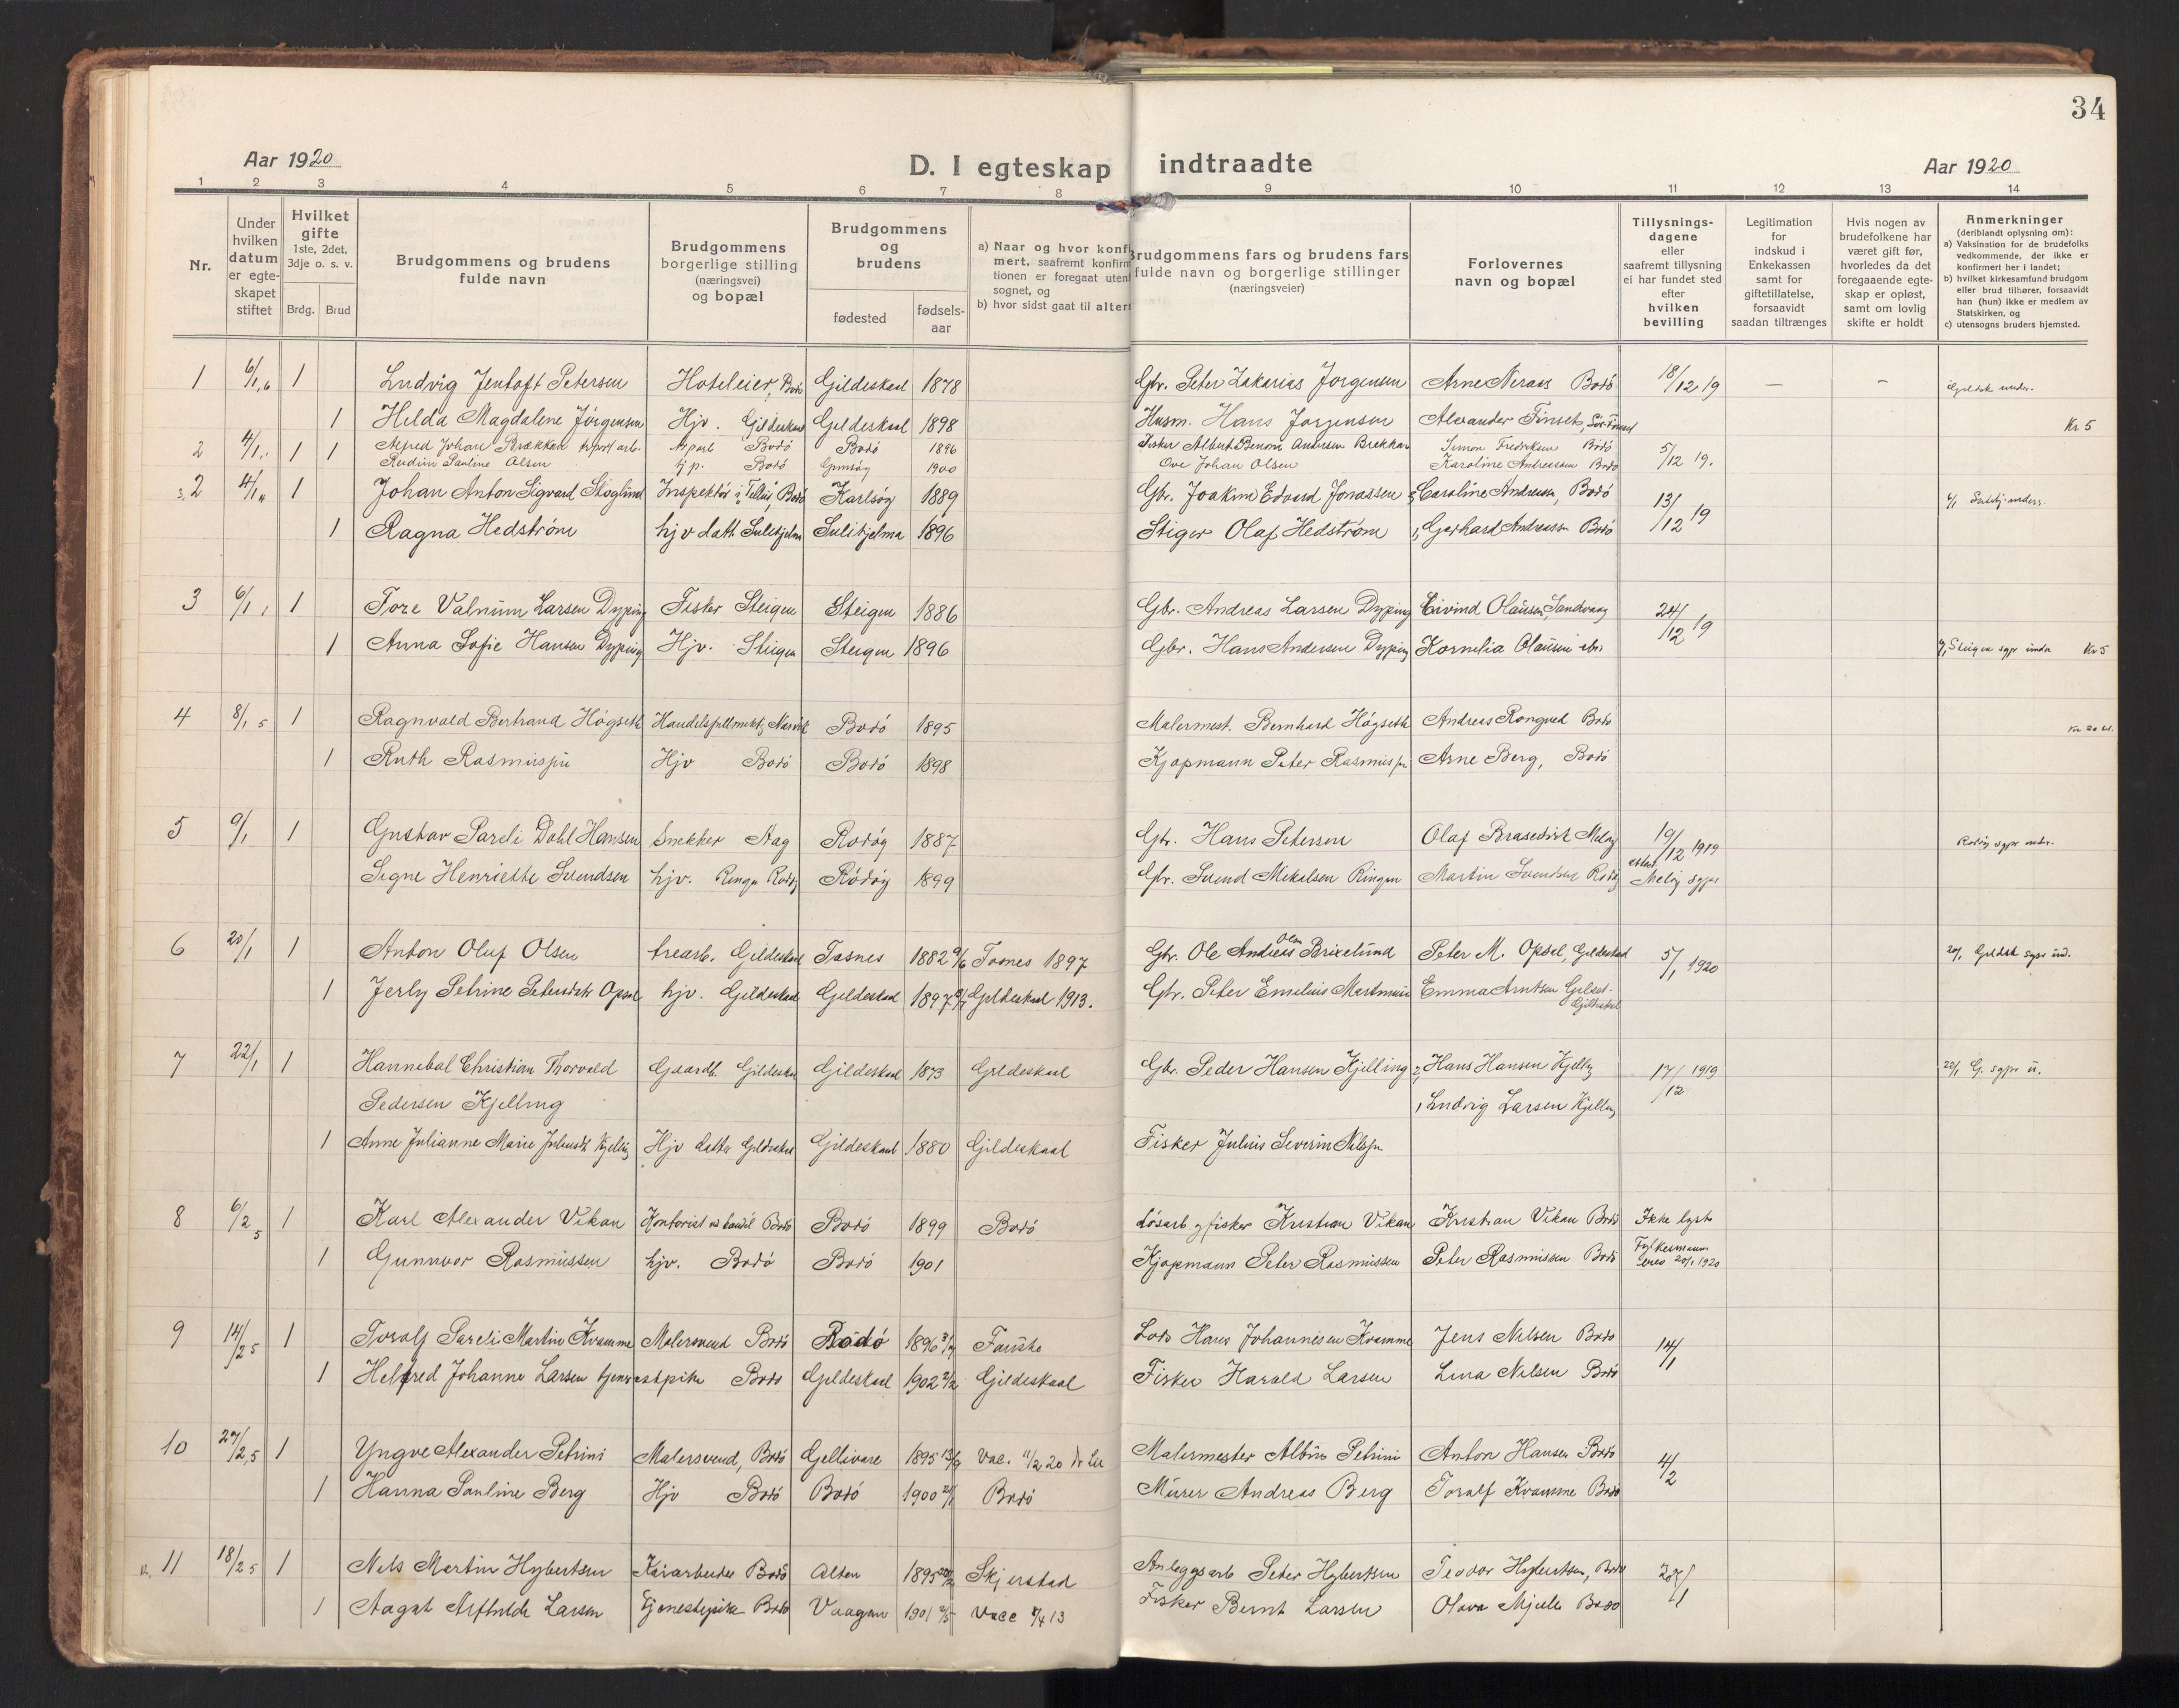 34
Aar 1920
D. I egteskap indtraadte
Aar 1920
1 2 3 4 5 6 7 8 9 10 11 12 13 14
Nr.
Under hvilken datum er egteskapet stiftet
Hvilket gifte 1ste, 2det, 3dje o. s. v.
Brdg. Brud
Brudgommens og brudens fulde navn
Brudgommens borgerlige stilling (næringsvei) og bopæl
Brudgommens og brudens
fødested
fødsels-aar
a) Naar og hvor konfirmert, saafremt konfirmtionen er foregaat uten sognet, og
b) hvor sidst gaat til alters
Brudgommens fars og brudens fars fulde navn og borgerlige stillinger (næringsveier)
Forlovernes navn og bopæl
Tillysningsdagene eller saafremt tillysning ei har fundet sted efter hvilken bevilling
Legitimation for indskud i Enkekassen samt for giftetillatelse, forsaavidt saadan tiltrænges
Hvis nogen av brudefolkene har været gift før, hvorledes da det foregaaende egteskap er opløst, samt om lovlig skifte er holdt
Anmerkninger (deriblandt oplysning om):
a) Vaksination for de brudefolks vedkommende, der ikke er konfirmert her i landet;
b) hvilket kirkesamfund brudgom eller brud tilhører, forsaavidt han (hun) ikke er medlem av Statskirken, og
c) utensogns bruders hjemsted.
1 6/1 1 Ludvig Jentoft Petersen Hoteleier, Bodö Gildeskaal 1878 Gbr. Peter Zakarias Jorgensen Arne Bodö 18/12 19 — –
1 Helda Magdalene Jörgensen Hjv. Gildeskaal Gildeskaal 1898 Husm. Hans Jorgensen Alexander Finset Kr 5
2 4/1 1 1 Alfred Johan Brækkan Bodö Bodö 1896 Fisker Albert Benoni Andersen Brekkan Simon Fredriksen Bodö 5/12 19.
Pauline Olsen Bodö Gimsöy 1900 Ove Johan Olsen Karoline Andreassen Bodö
3, 2 4/1 1 Johan Anton Sigvard Skoglund Inspektör i "Tellus", Bodö Karlsöy 1889 Gbr. Joakim Edvard Jonassen Caroline Andreasen, Bodö 13/12 19
1 Ragna Hedström hjv datt Sulitjelma Sulitjelma 1896 Stiger Olaf Hedström Gerhard Andreassen Bodö
3 6/1 1 Tore Valnum Larsen Dyping Fisker Steigen Steigen 1886 Gbr. Andreas Larsen Dyping Eivind Olausen, Sandvaag 24/12 19
1 Anna Sofie Hansen Dyping Hjv. Steigen Steigen 1896 Gbr. Hans Andersen Dyping Kornelia Olausen Steigen sgpr under Kr 5
4 8/1 5 1 Ragnvald Bertrand Högseth Handelsfullmekt, Narvik Bodö 1895 Malermest. Bernhard Högseth Andreas Rongved Bodö Kr 20
1 Ruth Rasmussen Hjv Bodö Bodö 1898 Kjøpmann Peter Rasmussen Arne Berg, Bodö
5 9/1 1 Gustav Pareli Dahl Hansen Snekker Aag Rödöy 1887 Gbr. Hans Petersen Olaf Meløy 19/12 1919 Rödöy sgpr under.
Signe Henriette Svendsen hjv. Rödöy 1899 Gbr. Svend Mikalsen Ringen Martin Svendsen Rödöy Meløy sgpr
6 20/1 1 Anton Oluf Olsen Gildeskaal Fosnes 1882 Fosnes 1897 Gbr. Ole Andreas Olsen Brixelund Peter M. Opsal, Gildeskaal 5/1 1920 20/1 Gildsk sgpr und.
1 Jerly Petrine Petersdtr Opsal hjv. Gildeskaal Gildeskaal 1897 Gildeskaal 1913. Gbr. Peter Emelius Martinusen Emma Arntsen Gildeskaal
7 22/1 1 Hannebal Christian Thorvald Gaardb. Gildeskaal Gildeskaal 1873 Gildeskaal Gbr. Peder Hansen Kjelling 2, Hans Hansen Kjelling 17/12 1919 22/1 G. sgpr u.
Pedersen Kjelling 1, Ludvig Larsen Kjelling
1 Anne Julianne Marie Juliusdtr Kjelling Hjv datter Gildeskaal Gildeskaal 1880 Gildeskaal Fisker Julius Severin Nilssen
8 6/2 5 1 Karl Alexander Vikan Kontorist Bodö Bodö 1899 Bodö Løsarb og fisker Kristian Vikan Kristian Vikan Bodö Ikke lyst
1 Gunnvor Rasmussen hjv. Bodö Bodö 1901 Kjøpmann Peter Rasmussen Peter Rasmussen Bodö Fylkesmannens 20/1 1920
9 14/2 5 1 Torolf Pareli Martin Kvamme Malersvend Bodö Bodö 1896 Fauske Lods Hans Johannesen Kvamme Jens Nilsen Bodö 14/1
1 Helfred Johanne Larsen tjenestpike Bodö Gildeskaal 1902 Gildeskaal Fisker Harald Larsen Lina Nilsen Bodö
10 27/2 5 1 Yngve Alexander Petrini Malersvend, Bodö Gellivare 1895 Vac. 11/2 20 Malermester Albin Petrini Anton Hansen Bodö 4/2
1 Hanna Pauline Berg Hjv Bodö Bodö 1900 Bodö Murer Andreas Berg Torolf Kvamme Bodö
11 18/2 5 1 Nils Martin Hybertsen Kaiarbeider Bodö Alten 1895 Skjerstad Anleggsarb Peter Hybertsen Teodor Hybertsen, Bodö 27/1
1 Aagat Larsen Tjenestepike Bodö Vaagan 1901 Vacc 7/4 13 Fisker Bernt Larsen Olava Mjelle Bodö